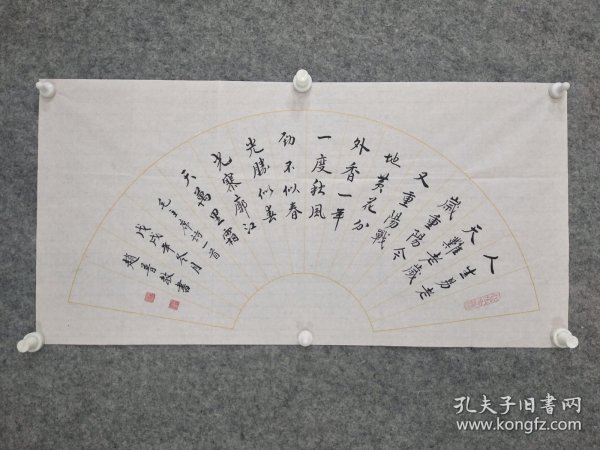 人生易老
天難老歲
歲重陽今
又重陽戰
地黄花分
外香一年
一度秋風
劲不似春
光勝似春
光寥廓江
天萬里霜
毛主席詩一首
戊戌年冬月
趙書
孔夫子旧书网
www.kongfz.com